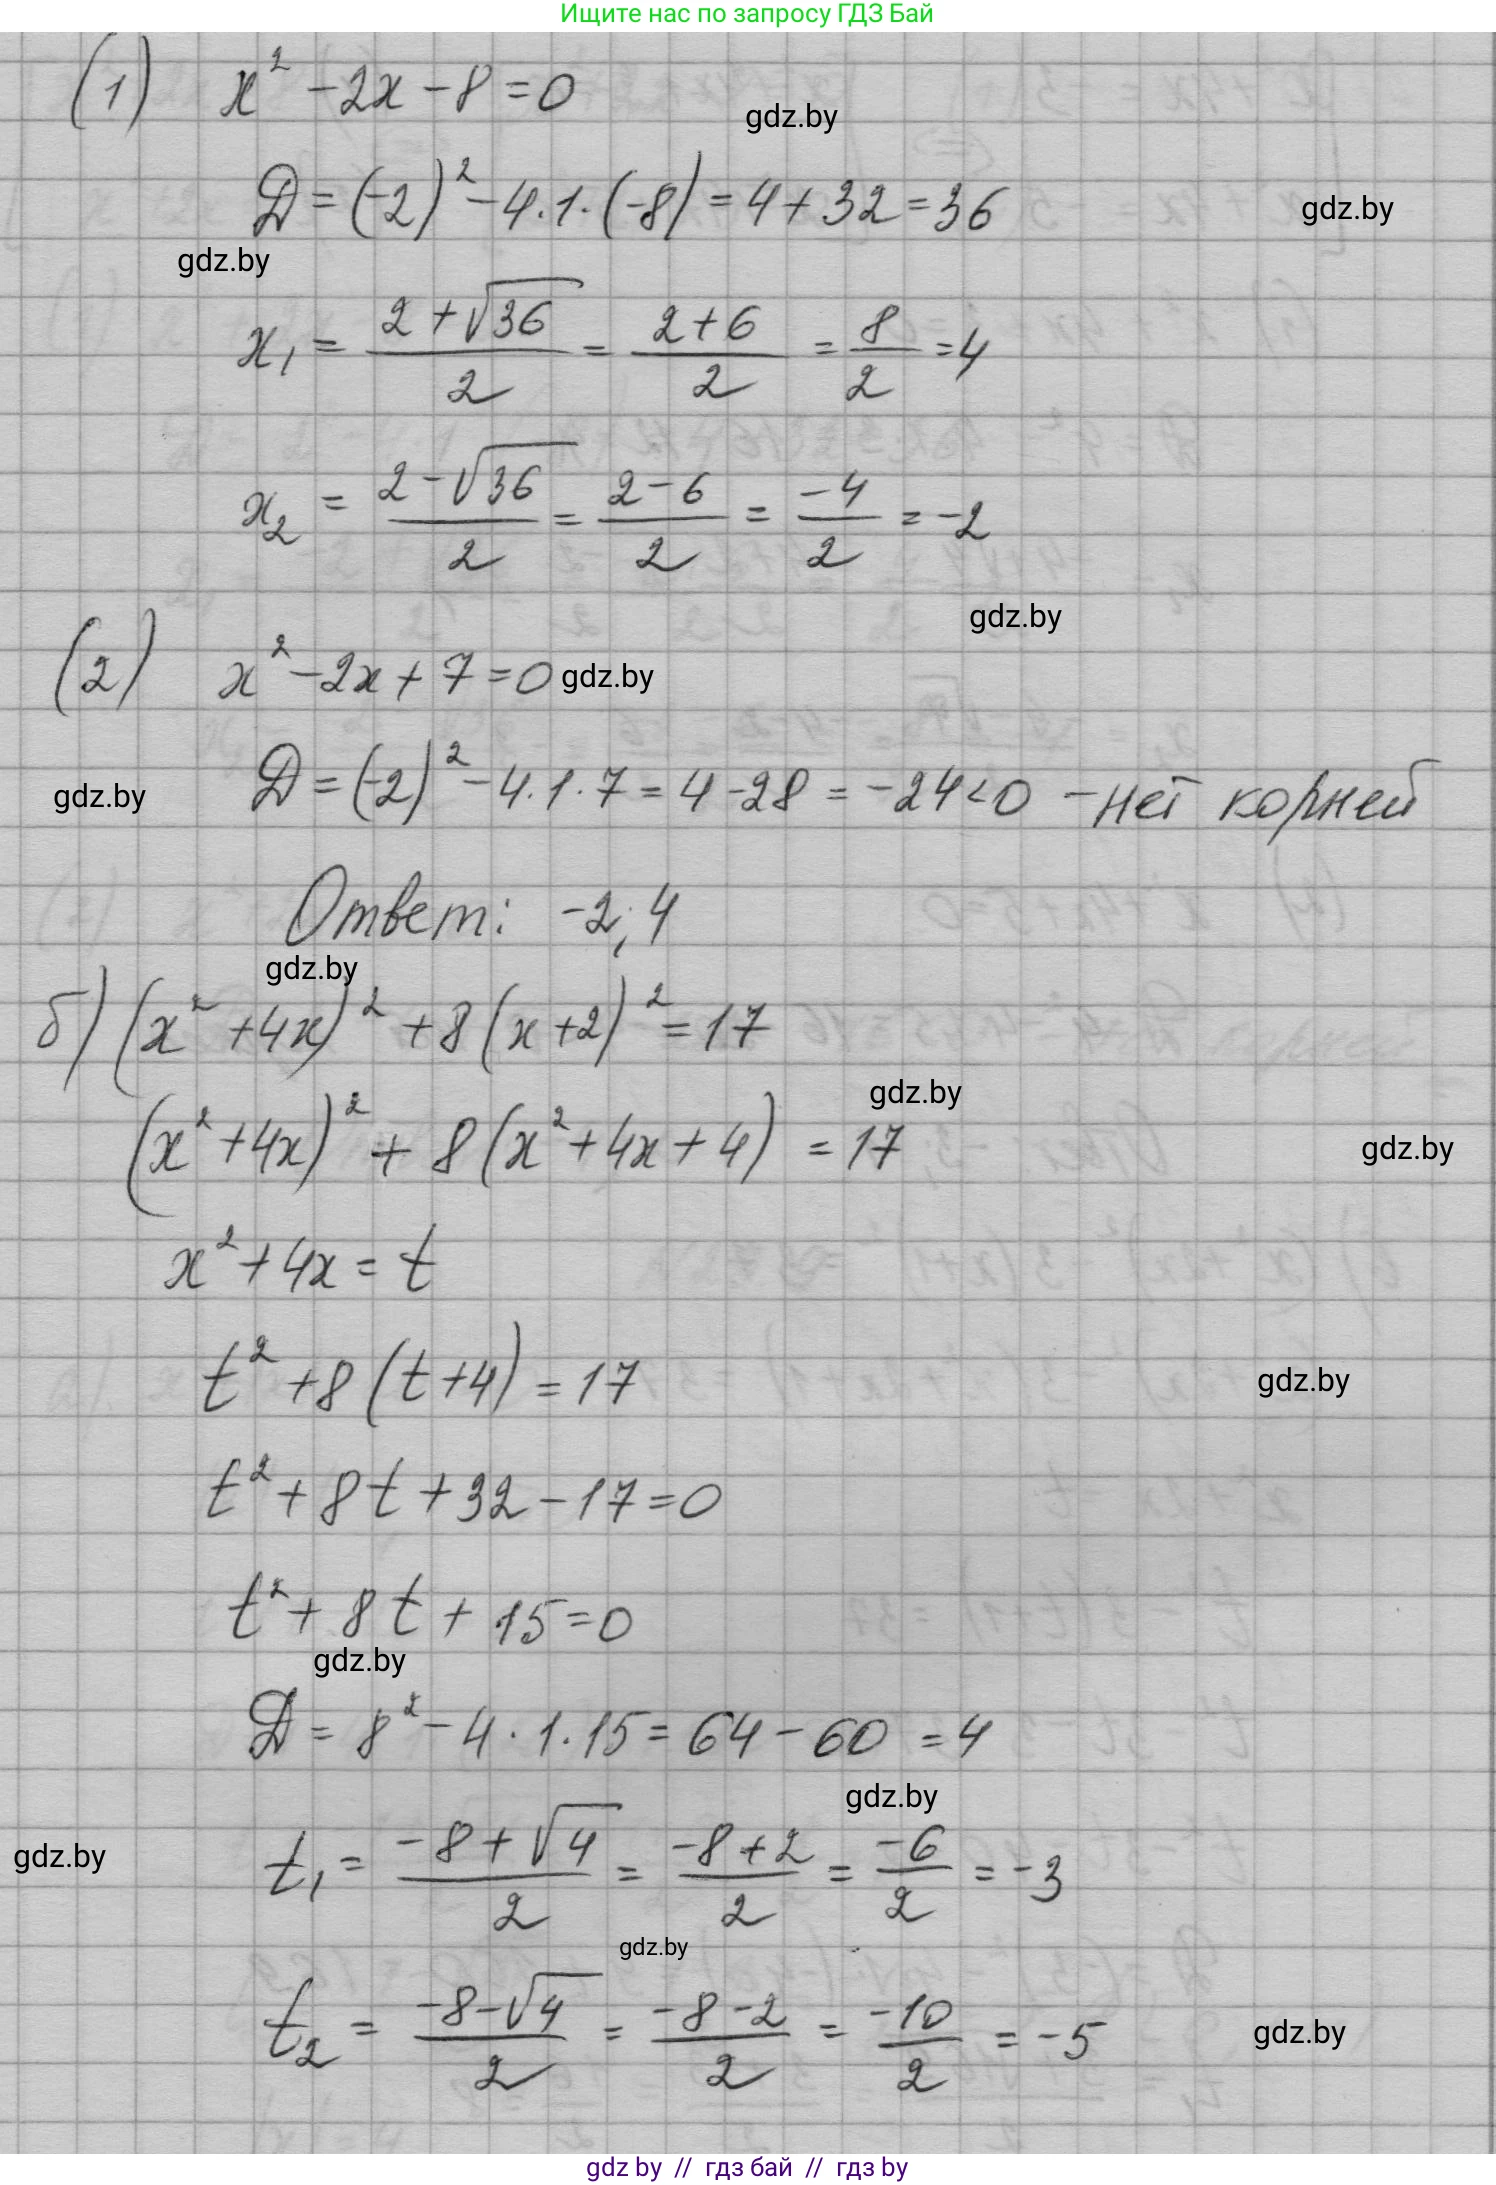 Ищите нас по запросу ГДЗ Бай
(1) x² - 2x - 8 = 0
gdz.by
D = (-2)² - 4·1·(-8) = 4 + 32 = 36
gdz.by
gdz.by
x₁ = (2 + √36)/2 = (2+6)/2 = 8/2 = 4
x₂ = (2 - √36)/2 = (2-6)/2 = -4/2 = -2
gdz.by
(2) x² - 2x + 7 = 0 gdz.by
D = (-2)² - 4·1·7 = 4 - 28 = -24 < 0 - нет корней
gdz.by
Ответ: -2; 4
gdz.by
б) (x² + 4x)² + 8(x+2)² = 17
gdz.by
(x² + 4x)² + 8(x² + 4x + 4) = 17
gdz.by
x² + 4x = t
t² + 8(t+4) = 17
gdz.by
t² + 8t + 32 - 17 = 0
t² + 8t + 15 = 0
gdz.by
D = 8² - 4·1·15 = 64 - 60 = 4
gdz.by
gdz.by
t₁ = (-8 + √4)/2 = (-8+2)/2 = -6/2 = -3
gdz.by
t₂ = (-8 - √4)/2 = (-8-2)/2 = -10/2 = -5
gdz.by
gdz by // гдз бай // гдз by